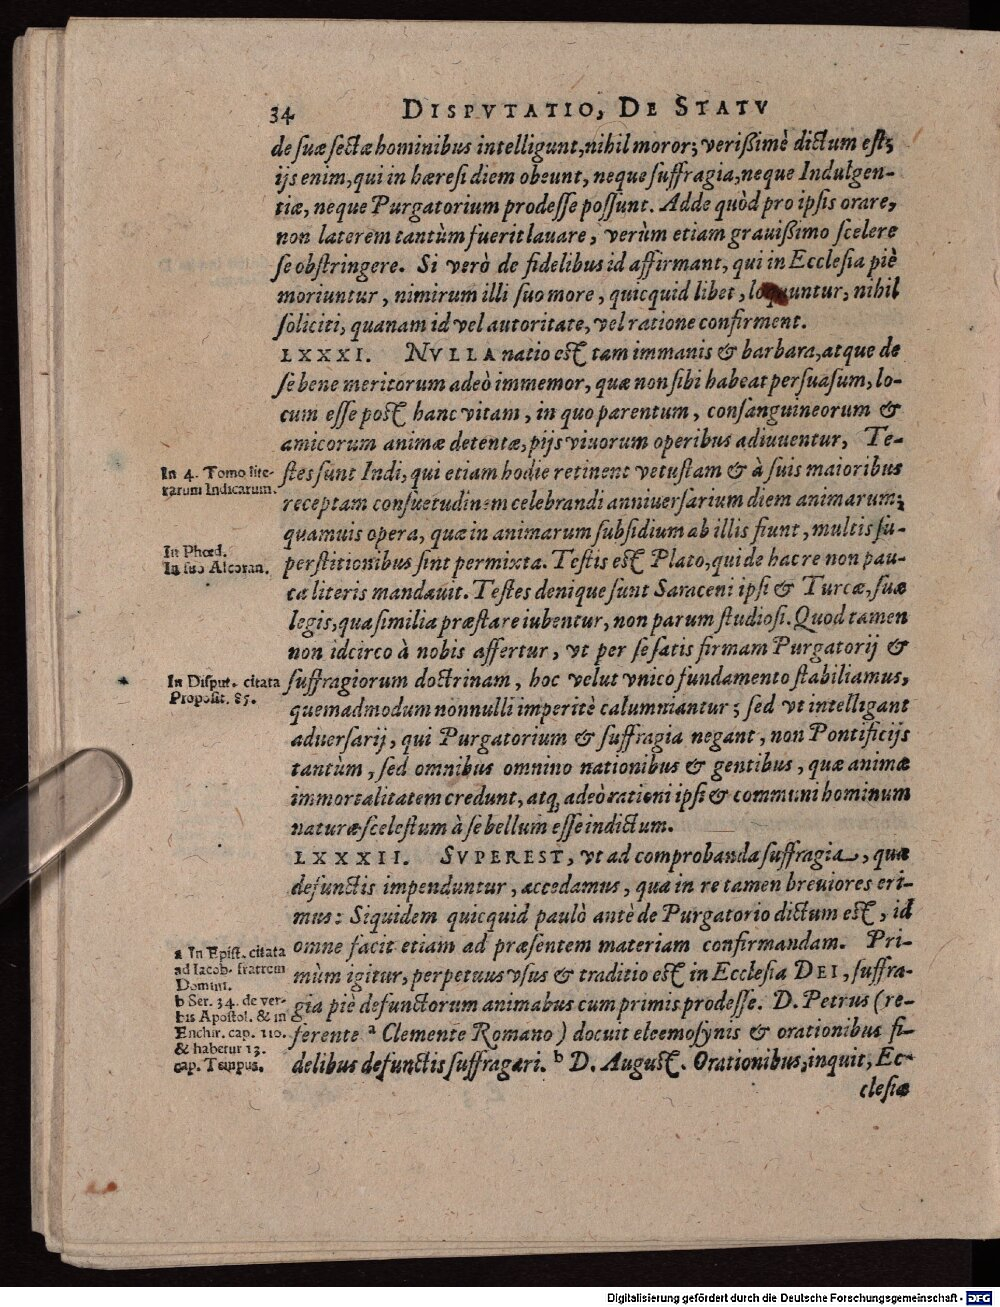 34 DISPVTATIO, DE STATV
de suæ sectæ hominibus intelligunt, nihil moror; verißimè dictum est;
ijs enim, qui in hæresi diem obeunt, neque suffragia, neque Indulgen-
tiæ, neque Purgatorium prodesse possunt. Adde quòd pro ipsis orare,
non laterem tantùm fuerit lauare, verùm etiam grauißimo scelere
se obstringere. Si verò de fidelibus id affirmant, qui in Ecclesia piè
moriuntur, nimirum illi suo more, quicquid libet, loquuntur, nihil
soliciti, quanam id vel autoritate, vel ratione confirment.
LXXXI. NVLLA natio est tam immanis & barbara, atque de
se bene meritorum adeò immemor, quæ non sibi habeat persuasum, lo-
cum esse post hanc vitam, in quo parentum, consanguineorum &
amicorum animæ detentæ, pijs viuorum operibus adiuuentur, Te-
In 4. Tomo lite-
rarum Indicarum.
stes sunt Indi, qui etiam hodie retinent vetustam & à suis maioribus
receptam consuetudinem celebrandi anniuersarium diem animarum;
quamuis opera, quæ in animarum subsidium ab illis fiunt, multis su-
In Phœd.
In suo Alcoran.
perstitionibus sint permixta. Testis est Plato, qui de hac re non pau-
ca literis mandauit. Testes denique sunt Saraceni ipsi & Turcæ, suæ
legis, qua similia præstare iubentur, non parum studiosi. Quod tamen
non idcirco à nobis affertur, vt per se satis firmam Purgatorij &
In Disput. citata
Proposit. 85.
suffragiorum doctrinam, hoc velut vnico fundamento stabiliamus,
quemadmodum nonnulli imperitè calumniantur; sed vt intelligant
aduersarij, qui Purgatorium & suffragia negant, non Pontificijs
tantùm, sed omnibus omnino nationibus & gentibus, quæ animæ
immortalitatem credunt, atq́; adeò rationi ipsi & communi hominum
naturæ scelestum à se bellum esse indictum.
LXXXII. SVPEREST, vt ad comprobanda suffragia, quæ
defunctis impenduntur, accedamus, qua in re tamen breuiores eri-
mus: Siquidem quicquid paulò antè de Purgatorio dictum est, id
omne facit etiam ad præsentem materiam confirmandam. Pri-
a In Epist. citata
ad Iacob. fratrem
Domini.
mùm igitur, perpetuus vsus & traditio est in Ecclesia DEI, suffra-
gia piè defunctorum animabus cum primis prodesse. D. Petrus (re-
b Ser. 34. de ver-
bis Apostol. & in
Enchir. cap. 110.
& habetur 13.
cap. Tempus.
ferente a Clemente Romano) docuit eleemosynis & orationibus fi-
delibus defunctis suffragari. b D. August. Orationibus, inquit, Ec-
clesiæ
Digitalisierung gefördert durch die Deutsche Forschungsgemeinschaft - DFG